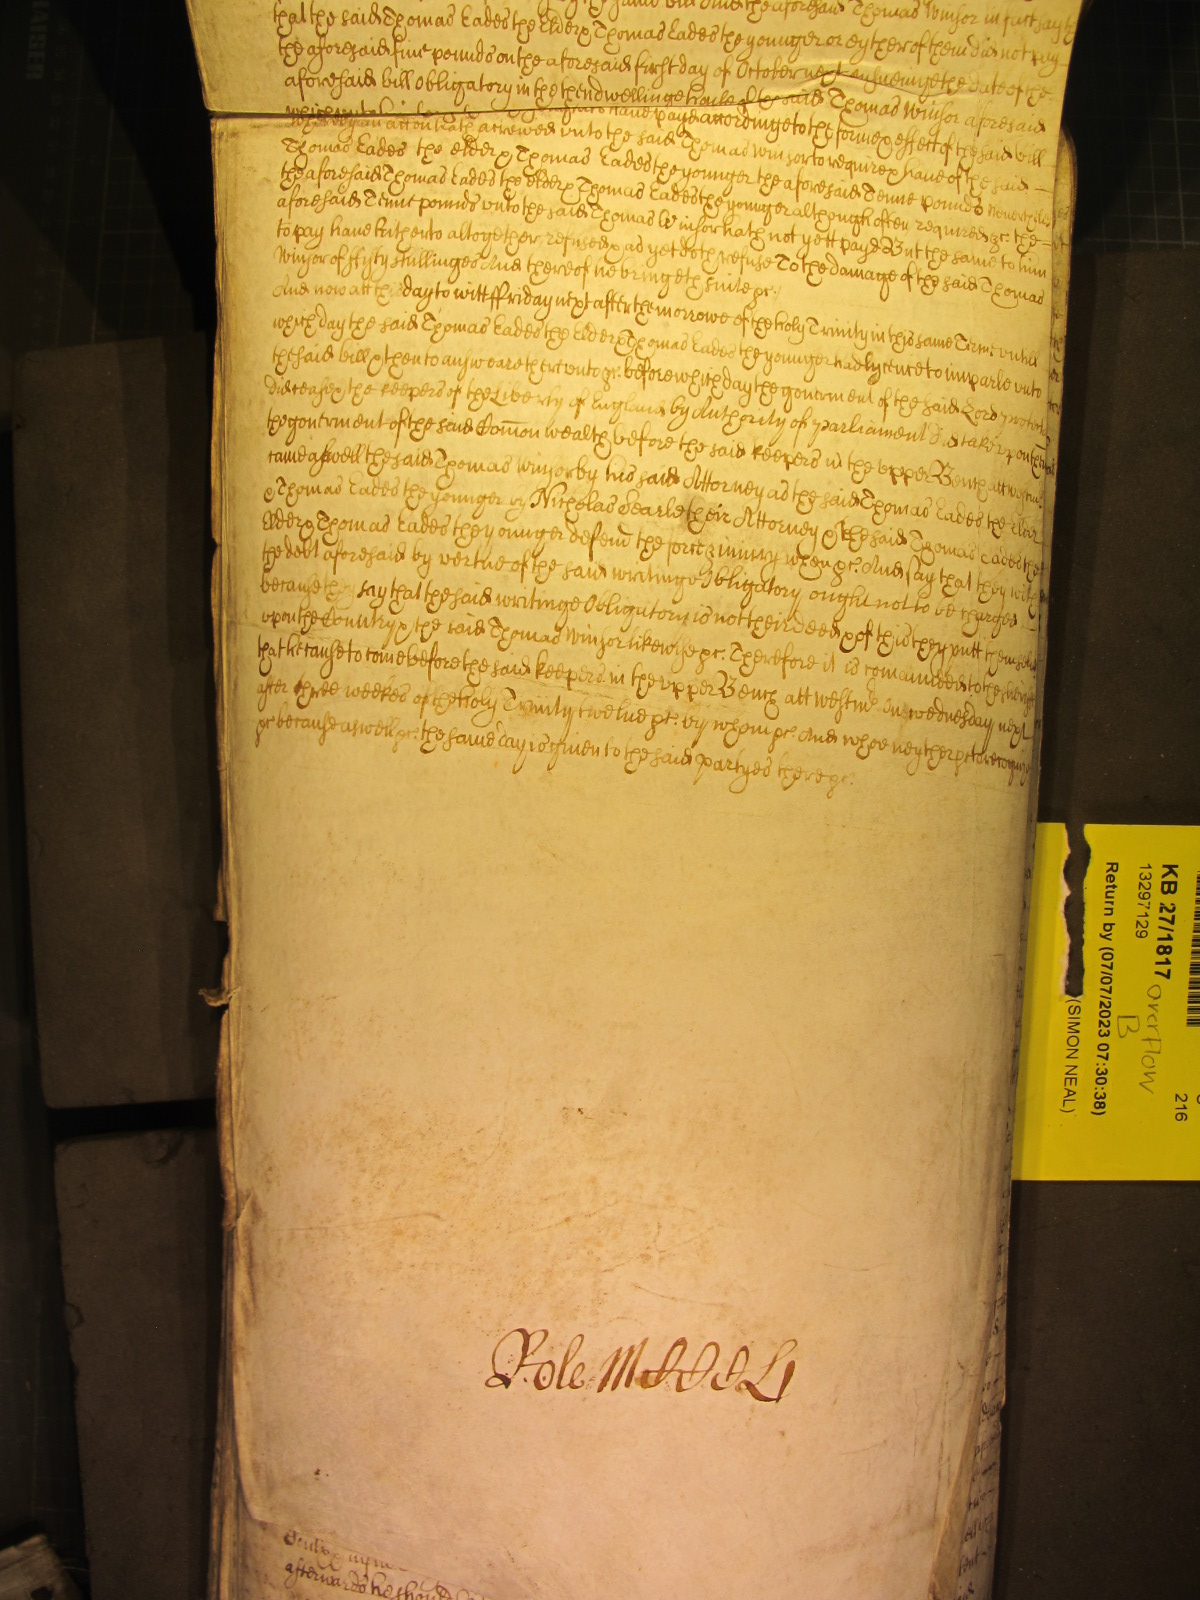 said bill And the aforesaid Thomas Winsor in fact say
that the said Thomas Eades the Elder & Thomas Eades the younger or eyther of them did not pay
the aforesaid five pounds on the aforesaid first day of October next ensueinge the date of the
aforesaid bill Obligatory in the then dwellinge house of the said Thomas Winsor aforesaid
have payd accordinge to the forme & effect of the said bill
whereby an accon hath accrewed unto the said Thomas Winsor to require & have of the said
Thomas Eades the elder & Thomas Eades the younger the aforesaid Tenne pounds Neverthelesse
the aforesaid Thomas Eades the elder & Thomas Eades the younger although often required &c the
aforesaid Tenne pounds unto the said Thomas Winsor hath not yett payd But the same to him
to pay have hitherto altogether refused & ad yet doth refuse To the damage of the said Thomas
Winsor of ffifty shillinges And thereof he bringeth suite &c.
And now att this day to witt ffriday next after the morrowe of the holy Trinity in this same Terme untill
which day the said Thomas Eades the Elder & Thomas Eades the younger had lycence to imparle unto
the said bill & then to answeare thereunto &c. before which day the goverment of the said Lord protector
diseased the keepers of the Liberty of England by Authority of parliament did take uppon them
the goverment of the said Comon wealth before the said keepers in the upper Bench att westmr
came aswell the said Thomas Winsor by his said Attorney as the said Thomas Eades the elder
& Thomas Eades the younger by Nicholas Searle their Attorney & the said Thomas Eades the
Elder & Thomas Eades the younger defend the force & iniury when &c. And say that they with
the debt aforesaid by vertue of the said writinge Obligatory ought not to be charged
because they say that the said writinge Obligatory is not their deed & of this they putt themselves
upon the Country & the said Thomas Winsor likewise &c. Therefore it is comanded to the sheriffe
that he cause to come before the said keepers in the upper Bench att westmr on wednesday next
after three weekes of the holy Trinity twelve &c. by whom &c. And whoe neyther &c to recognize
&c because aswell &c. the same day is given to the said partyes there &c.
Role MCCCLI
afterwards he should
KB 27/1817
13297129
Return by (07/07/2023 07:30:38)
(SIMON NEAL)
Overflow
B
216